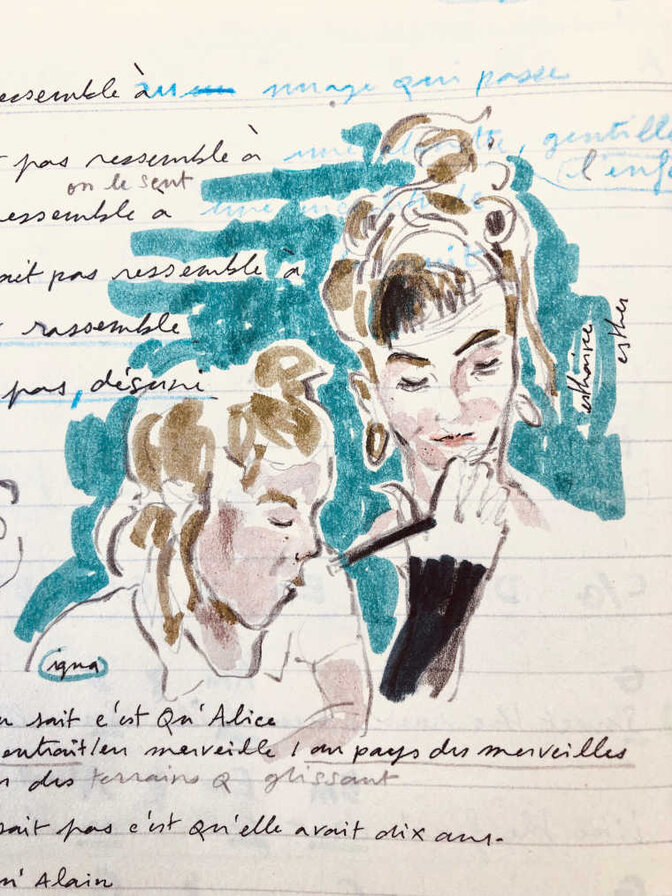 essemble à nuage qui passe
pas ressemble à une , gentille
on le sent
l'enfa
essemble a une
ait pas ressemble à
rassemble
pas, désuni
esther
igna
sait c'est Qu'Alice
entrait/en merveille / au pays des merveilles
des terrains Q glissant
sait pas c'est qu'elle avait dix ans.
n' Alain